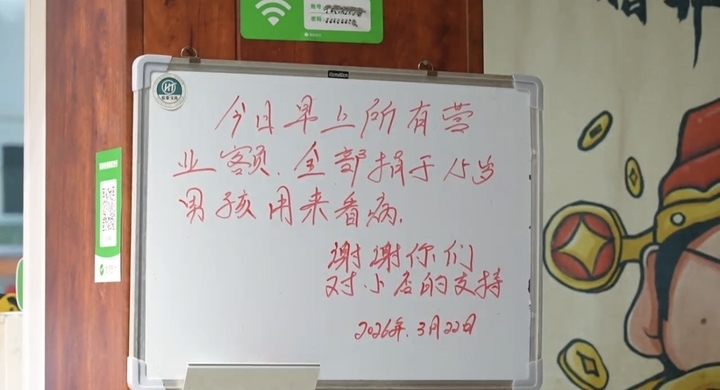 账号
密码
HT
今日早上所有营
业额.全部捐于15岁
男孩用来看病.
谢谢你们
对小店的支持
2026年.3月22日